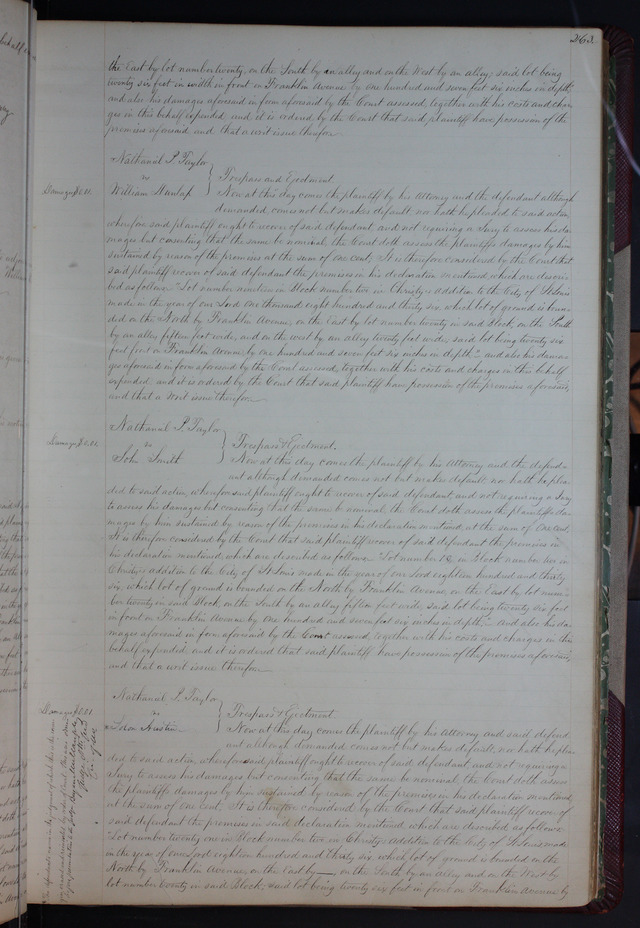 263
the East by lot number twenty, on the South by an alley and on the West by an alley, said lot being
twenty six feet in width in front on Franklin Avenue by One hundred and seven feet six inches in depth,
and also his damages aforesaid in form aforesaid by the Court assessed, together with his costs and char
ges in this behalf expended, and it is ordered by the Court that said plaintiff have possession of the
premises aforesaid, and that a writ issue therefor.
Nathaniel P. Taylor
vs
Trespass and Ejectment.
Damages $0.01.
William Dunlap
Now at this day comes the plaintiff by his Attorney and the defendant although
demanded comes not but makes default, nor hath he pleaded to said action,
wherefore said plaintiff ought to recover of said defendant, and not requiring a Jury to assess his da-
mages but consenting that the same be nominal, the Court doth assess the plaintiffs damages by him
sustained by reason of the premises at the sum of one cent. It is therefore considered by the Court that
said plaintiff recover of said defendant the premises in his declaration mentioned, which are descri-
bed as follows: "Lot number nineteen in Block number two in Christy's addition to the City of St Louis
made in the year of our Lord One thousand eight hundred and thirty six, which lot of ground is boun-
ded on the North by Franklin Avenue, on the East by lot number twenty in said Block, on the South
by an alley fifteen feet wide, and on the west by an alley twenty feet wide, said lot being twenty six
feet front on Franklin Avenue by one hundred and seven feet six inches in depth," and also his dama-
ges aforesaid in form aforesaid by the Court assessed, together with his costs and charges in this behalf
expended, and it is ordered by the Court that said plaintiff have possession of the premises aforesaid,
and that a Writ issue therefor.
Nathaniel P. Taylor
vs
Trespass & Ejectment.
Damages $0.01.
John Smith
Now at this day comes the plaintiff by his Attorney and the defend-
ant although demanded comes not but makes default, nor hath he plea-
ded to said action, wherefore said plaintiff ought to recover of said defendant, and not requiring a Jury
to assess his damages but consenting that the same be nominal, the Court doth assess the plaintiffs da-
mages by him sustained by reason of the premises in his declaration mentioned, at the sum of One cent.
It is therefore considered by the Court that said plaintiff recover of said defendant the premises in
his declaration mentioned, which are described as follows: "Lot number in Block number two in
Christy's addition to the City of St Louis made in the year of our Lord eighteen hundred and thirty
six, which lot of ground is bounded on the North by Franklin Avenue, on the East by lot num-
ber twenty in said Block, on the South by an alley fifteen feet wide, said lot being twenty six feet
in front on Franklin Avenue by One hundred and seven feet six inches in depth," And also his da-
mages aforesaid in form aforesaid by the Court assessed, together with his costs and charges in this
behalf expended, and it is ordered that said plaintiff have possession of the premises aforesaid,
and that a writ issue therefor.
Nathaniel P. Taylor
vs
Trespass & Ejectment.
Damages $0.01
Now at this day comes the plaintiff by his Attorney and said defend
ant although demanded comes not but makes default, nor hath he plea
ded to said action wherefore said plaintiff ought to recover of said defendant, and not requiring a
Jury to assess his damages but consenting that the same be nominal, the Court doth assess
the plaintiffs damages by him sustained by reason of the premises in his declaration mentioned,
at the sum of One cent. It is therefore considered by the Court that said plaintiff recover of
said defendant the premises in said declaration mentioned which are described as follows:
"Lot number twenty one in Block number two in Christy's addition to the City of St Louis made
in the year of our Lord eighteen hundred and thirty six, which lot of ground is bounded on the
North by Franklin Avenue, on the East by — on the South by an alley and on the West by
lot number twenty in said Block, said lot being twenty six feet in front on Franklin Avenue by